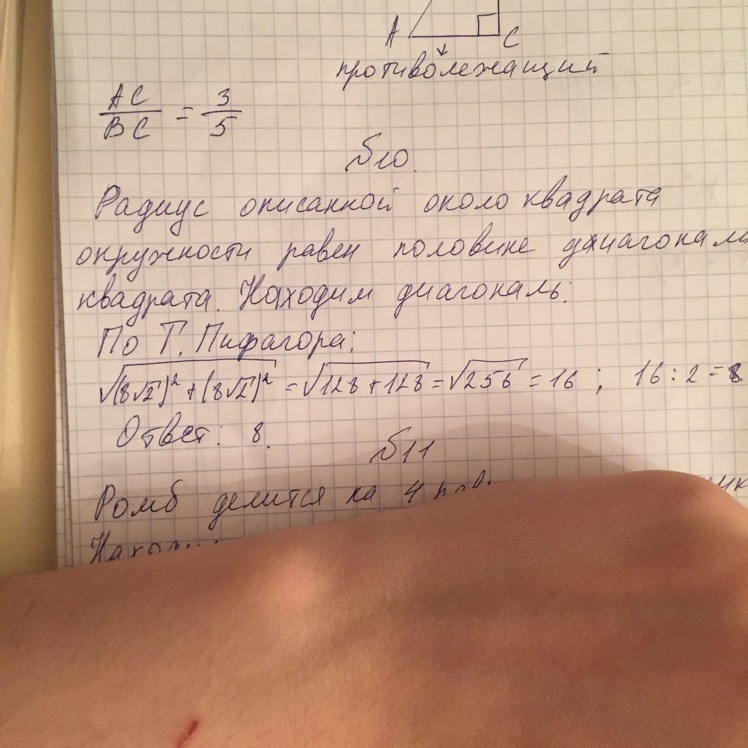 A C
противолежащий
AC/BC = 3/5
№10.
Радиус описанной около квадрата
окружности равен половине диагонали
квадрата. Находим диагональ:
По Т. Пифагора:
√(8√2)² + (8√2)² = √128+128 = √256 = 16 ; 16 : 2 = 8
Ответ: 8.
№11
Ромб делится на 4